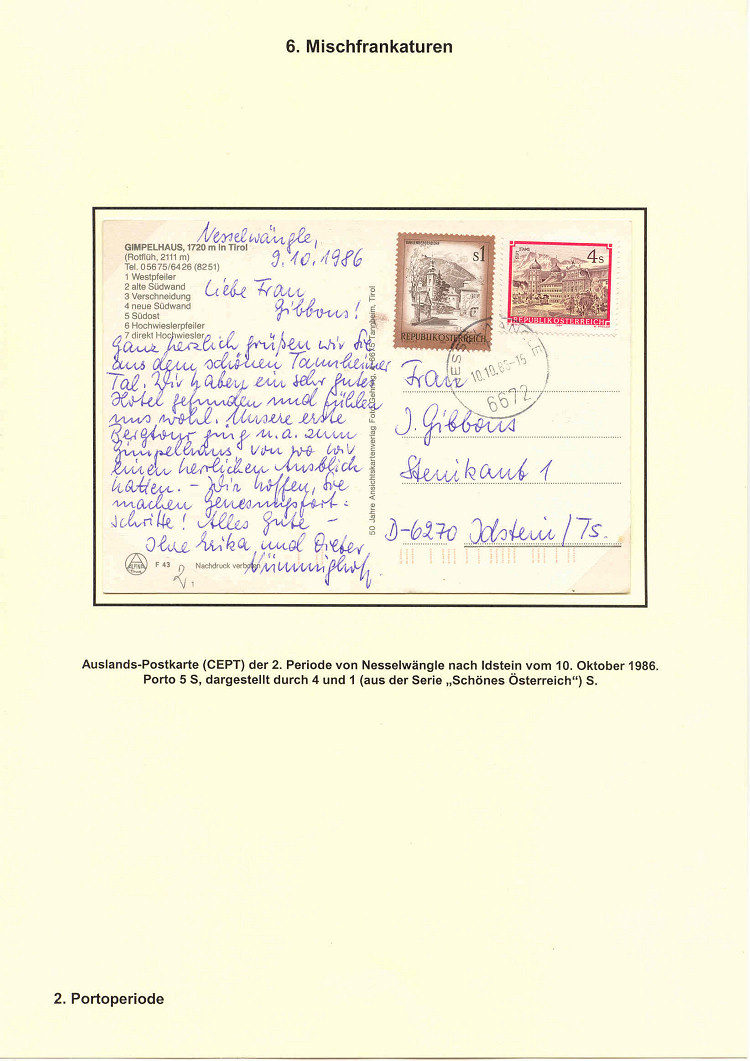 6. Mischfrankaturen
Nesselwängle,
9.10.1986
GIMPELHAUS, 1720 m in Tirol
(Rotflüh, 2111 m)
Tel. 05675/6426 (8251)
1 Westpfeiler
2 alte Südwand
3 Verschneidung
4 neue Südwand
5 Südost
6 Hochwieslerpfeiler
7 direkt Hochwiesler
Liebe Frau
Gibbons!
Ganz herzlich grüßen wir Sie
aus dem schönen Tannheimer
Tal. Wir haben ein sehr gutes
Hotel gefunden und fühlen
uns wohl. Unsere erste
Bergtour ging u.a. zum
Gimpelhaus, von wo wir
einen herrlichen Ausblick
hatten. – Wir hoffen, Sie
machen Genesungsfort-
schritte! Alles Gute –
Ihre Erika und Dieter
ALPINA
F 43
Nachdruck verboten
2.
50 Jahre Ansichtskartenverlag Foto Gehring, A-6675 Tannheim, Tirol
s1
REPUBLIK ÖSTERREICH
4s
STIFT STAMS
REPUBLIK ÖSTERREICH
10.10.86-15
6672
Frau
J. Gibbons
Steinkaut 1
D-6270 Idstein/Ts.
Auslands-Postkarte (CEPT) der 2. Periode von Nesselwängle nach Idstein vom 10. Oktober 1986.
Porto 5 S, dargestellt durch 4 und 1 (aus der Serie „Schönes Österreich“) S.
2. Portoperiode